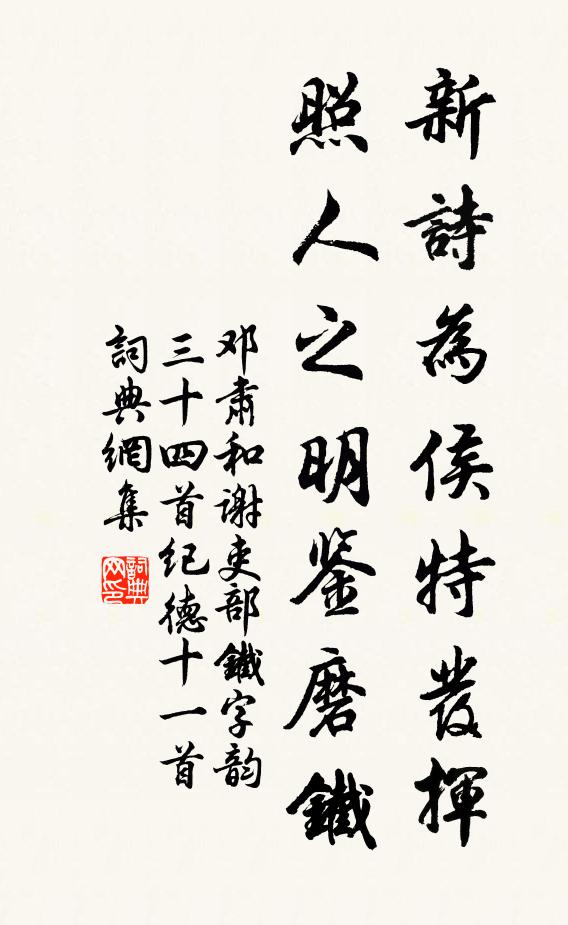 新詩為侯特發揮
照人之明鉴磨鐵
邓肅和谢吏部鐵字韵
三十四首纪德十一首
詞典網集
詞典
网印